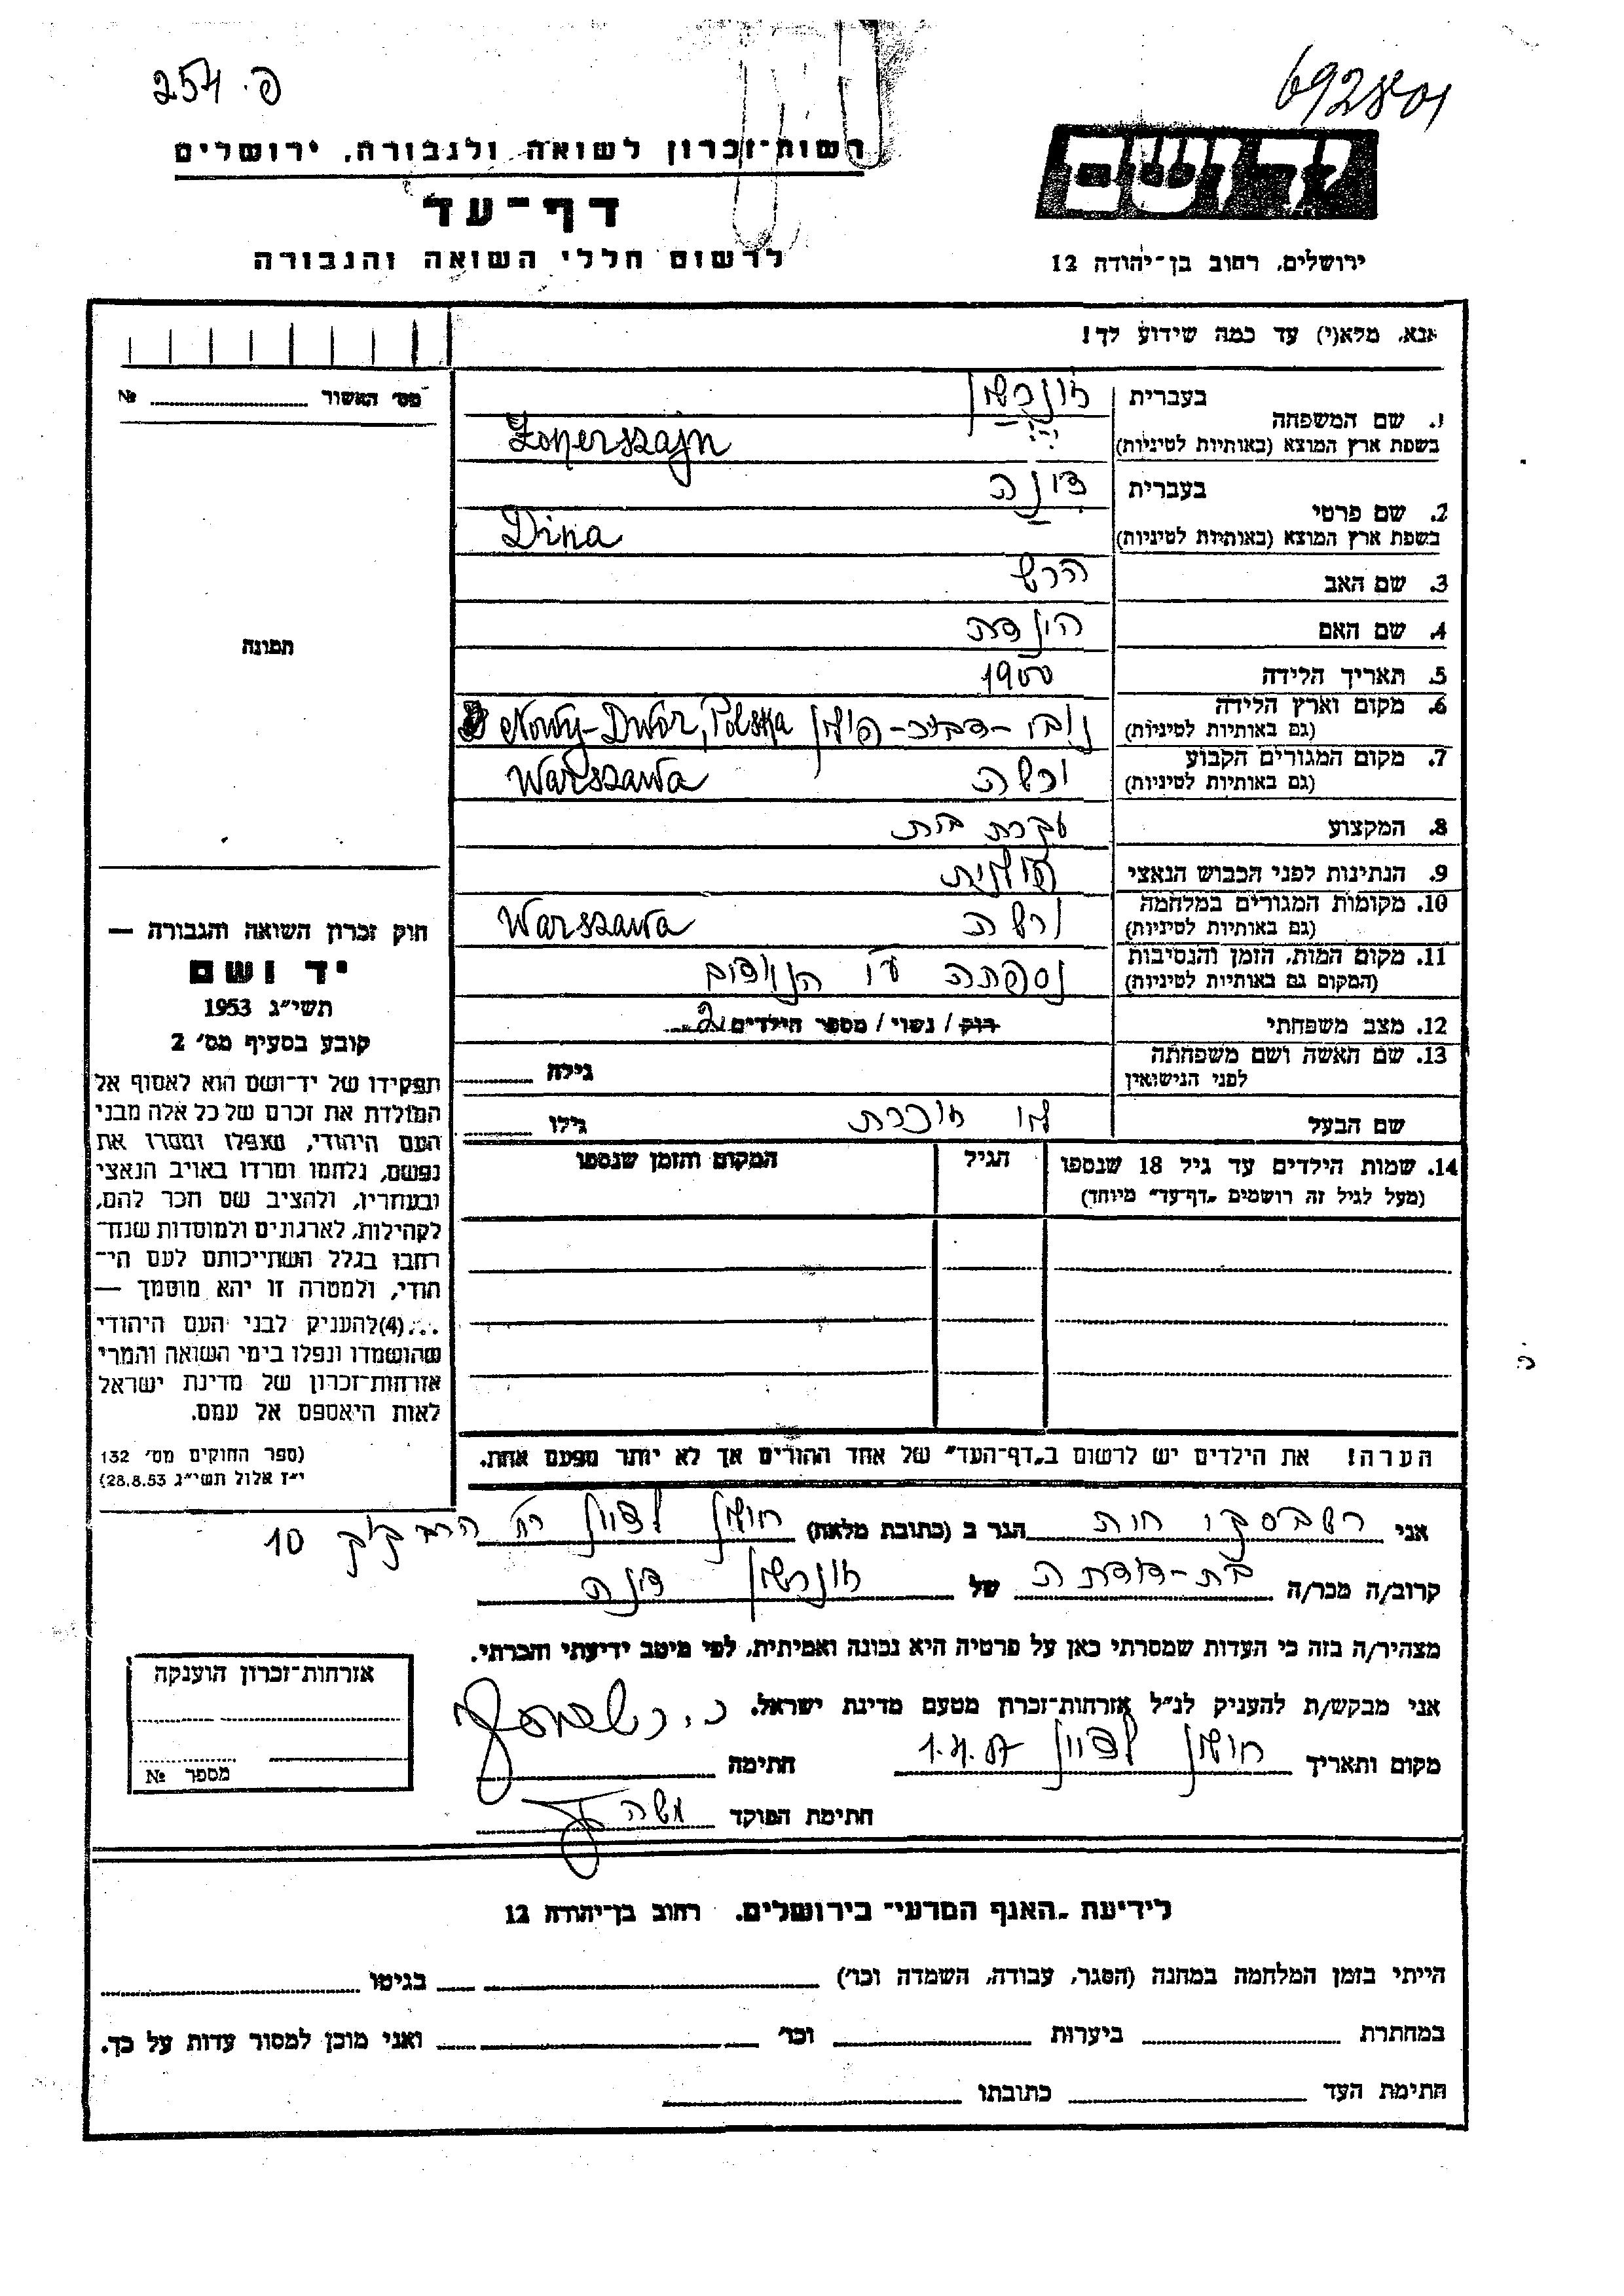 254 .פ
692801
רשות־זכרון לשואה ולגבורה, ירושלים
דף־עד
לרשום חללי השואה והגבורה
יד ושם
ירושלים, רחוב בן־יהודה 12
אנא, מלא(י) עד כמה שידוע לך!
מס׳ האשור № 
1. שם המשפחה
בעברית
זונרשין
בשפת ארץ המוצא (באותיות לטיניות)
Zonerszajn
2. שם פרטי
בעברית
דינה
בשפת ארץ המוצא (באותיות לטיניות)
Dina
3. שם האב הרש
4. שם האם הינדה
5. תאריך הלידה 1900
6. מקום וארץ הלידה
(גם באותיות לטיניות)
Nowy-Dwor, Polska
7. מקום המגורים הקבוע
(גם באותיות לטיניות)
ורשה Warszawa
8. המקצוע עקרת בית
9. הנתינות לפני הכבוש הנאצי פולנית
10. מקומות המגורים במלחמה
(גם באותיות לטיניות)
ורשה Warszawa
11. מקום המות, הזמן והנסיבות
(המקום גם באותיות לטיניות)
נספתה ע״י הנאצים
12. מצב משפחתי רוק / נשוי / מספר הילדים 2
13. שם האשה ושם משפחתה
לפני הנישואין
גילה
שם הבעל לא זוכרת גילו
14. שמות הילדים עד גיל 18 שנספו
(מעל לגיל זה רושמים „דף־עד״ מיוחד)
הגיל
המקום והזמן שנספו
תמונה
חוק זכרון השואה והגבורה —
יד ושם
תשי״ג 1953
קובע בסעיף מס׳ 2
תפקידו של יד־ושם הוא לאסוף אל
המולדת את זכרם של כל אלה מבני
העם היהודי, שנפלו ומסרו את
נפשם, נלחמו ומרדו באויב הנאצי
ובעוזריו, ולהציב שם וזכר להם,
לקהילות, לארגונים ולמוסדות שנח־
רבו בגלל השתייכותם לעם הי־
הודי, ולמטרה זו יהא מוסמך —
...(4) להעניק לבני העם היהודי
שהושמדו ונפלו בימי השואה והמרי
אזרחות־זכרון של מדינת ישראל
לאות היאספם אל עמם.
(ספר החוקים מס׳ 132
י״ז אלול תשי״ג 28.8.53)
הערה! את הילדים יש לרשום ב„דף־העד״ של אחד ההורים אך לא יותר מפעם אחת.
אני רשבסקי חיה הגר ב (כתובת מלאה) ראשון לציון רח׳ הרב קוק 10
קרוב/ה מכר/ה בת-דודתה של זונרשין דינה
מצהיר/ה בזה כי העדות שמסרתי כאן על פרטיה היא נכונה ואמיתית, לפי מיטב ידיעתי והכרתי.
אני מבקש/ת להעניק לנ״ל אזרחות־זכרון מטעם מדינת ישראל.
מקום ותאריך ראשון לציון חתימה
חתימת הפוקד משה
אזרחות־זכרון הוענקה
מספר №
לידיעת „האגף המדעי״ בירושלים, רחוב בן־יהודה 12
הייתי בזמן המלחמה במחנה (הסגר, עבודה, השמדה וכו׳) בגיטו
במחתרת ביערות וכו׳ ואני מוכן למסור עדות על כך.
חתימת העד כתובתו